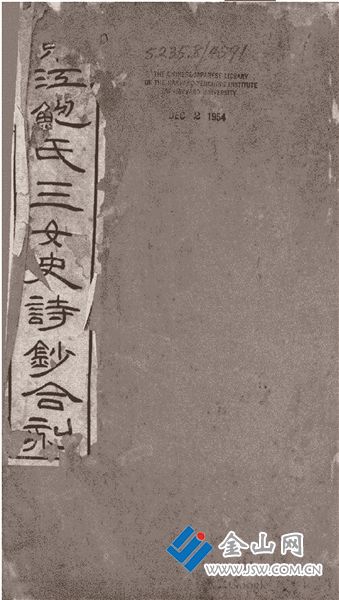 江鮑氏三女史詩鈔合刻
THE CHINESE-JAPANESE LIBRARY
OF THE HARVARD-YENCHING INSTITUTE
AT HARVARD UNIVERSITY
DEC 2 1954
金山网
www.JSW.COM.CN
Google